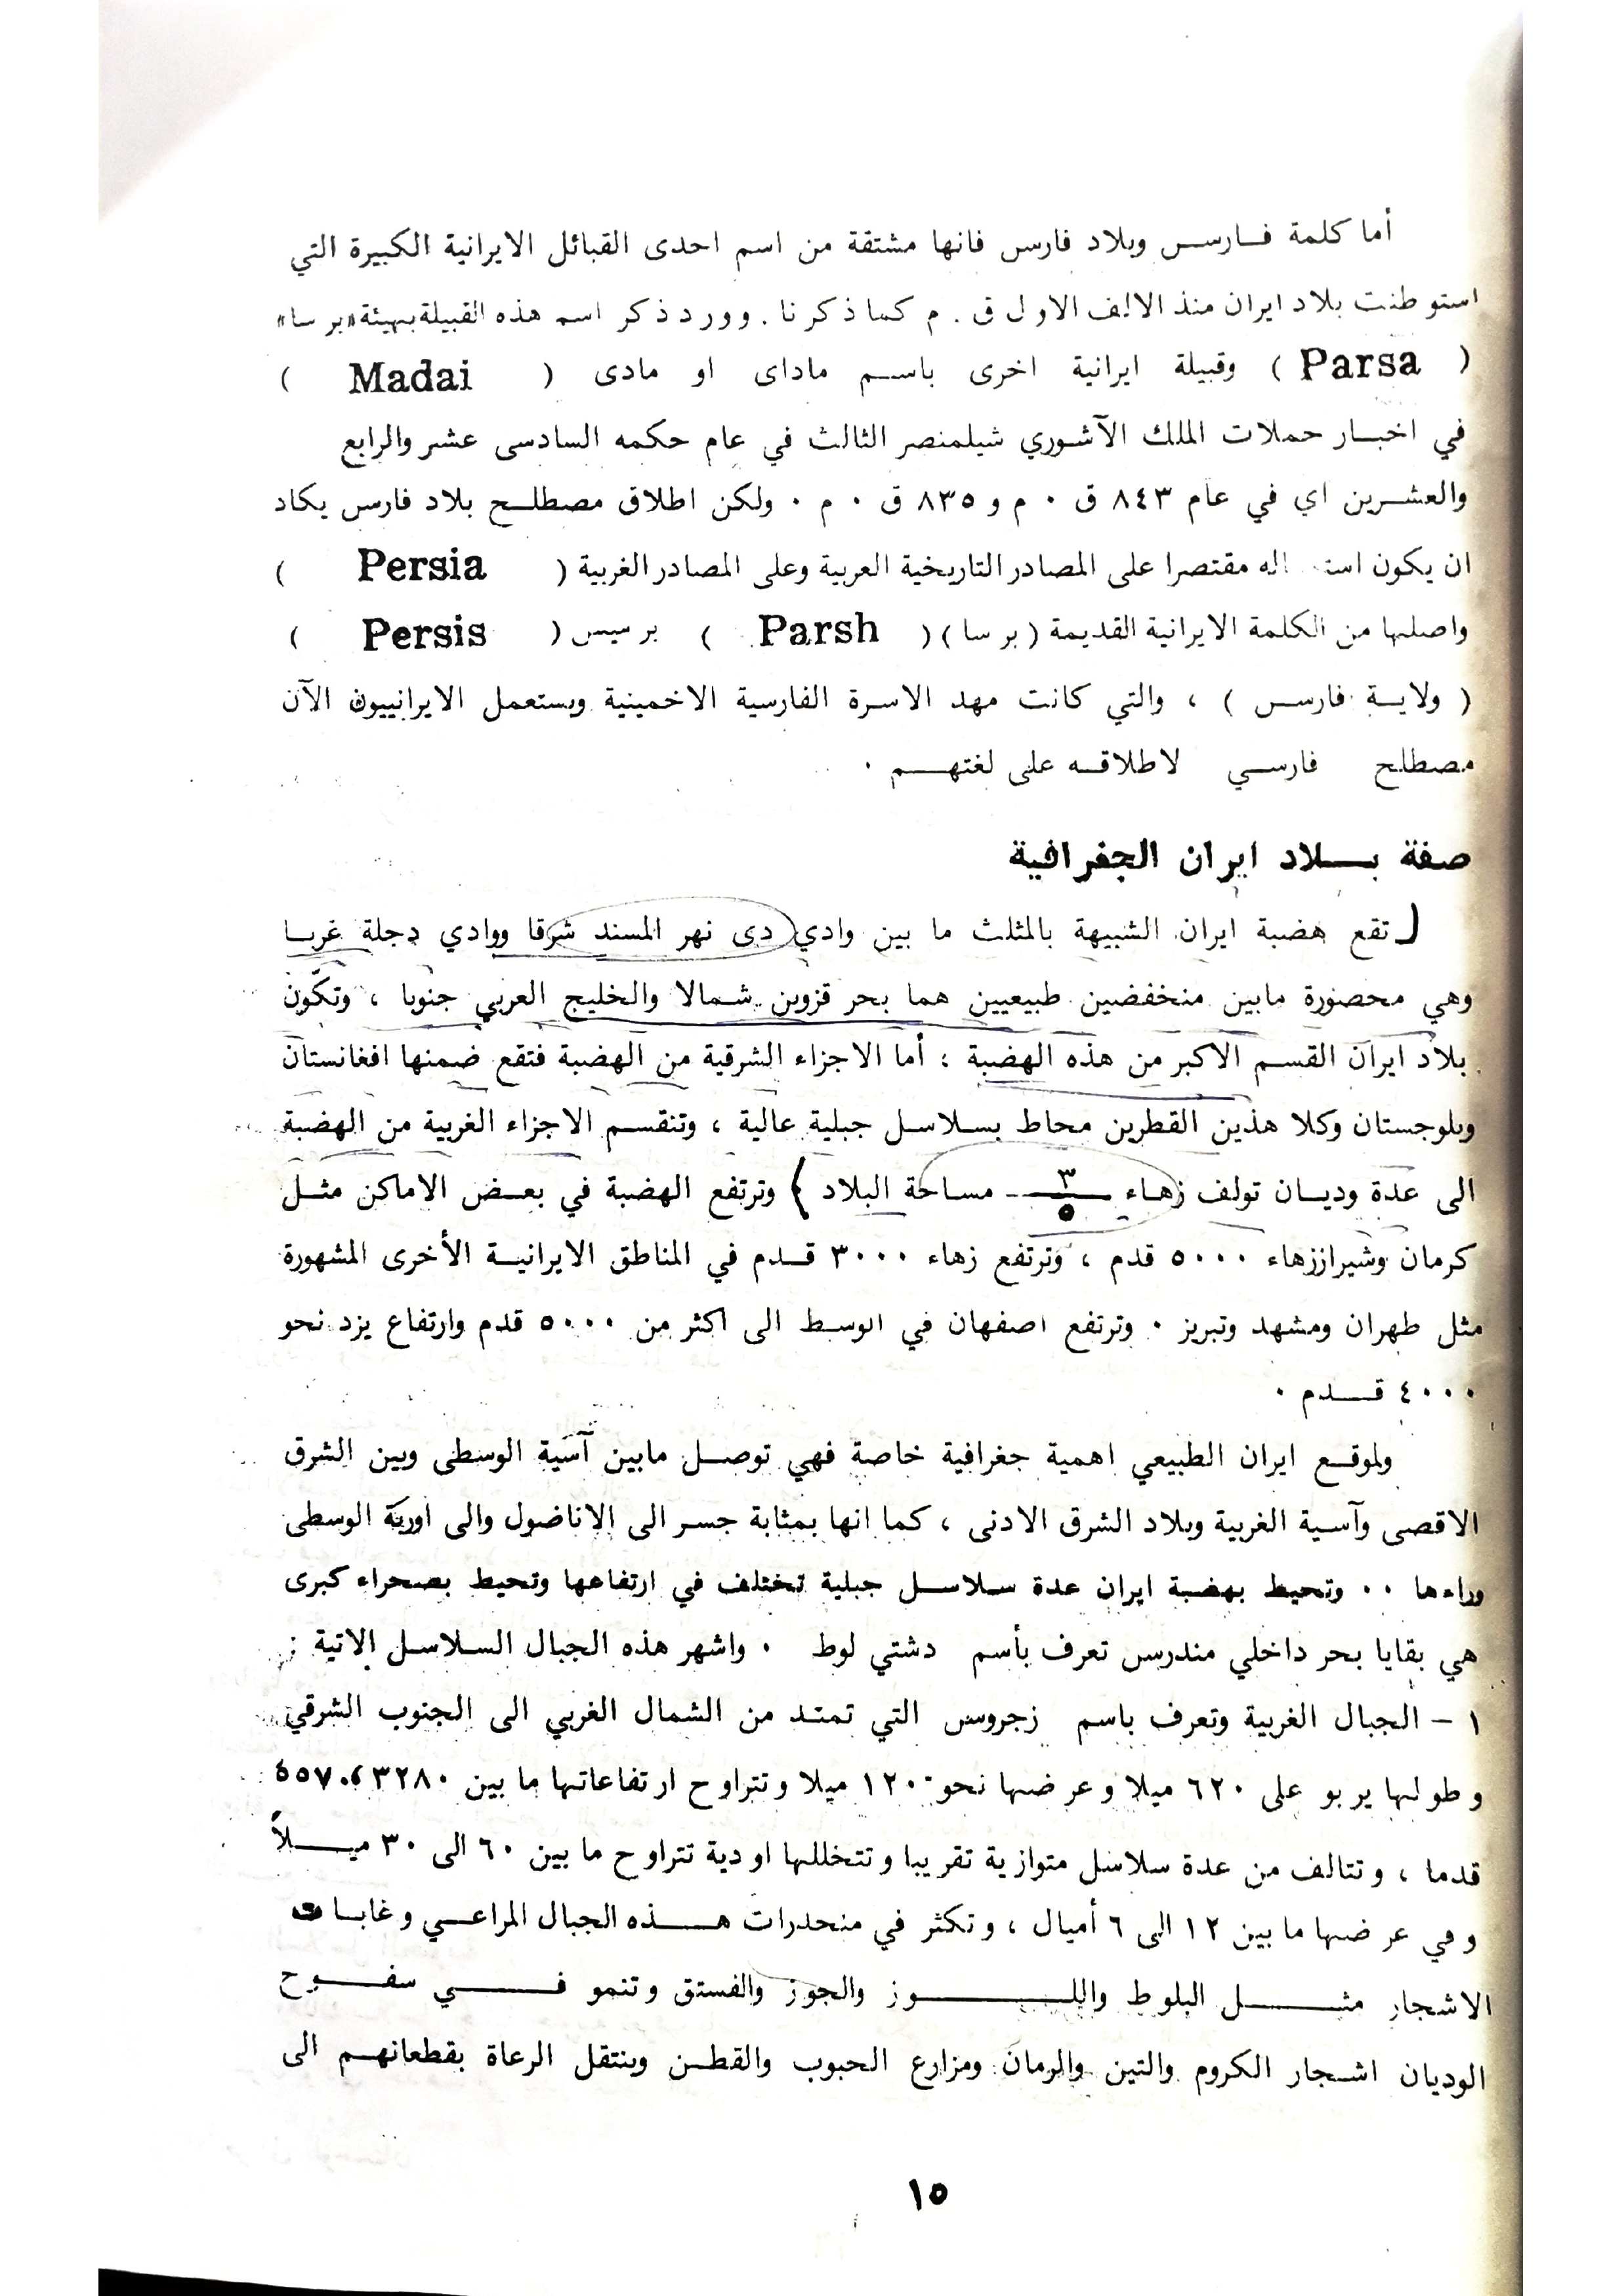 أما كلمة فارس وبلاد فارس فانها مشتقة من اسم احدى القبائل الايرانية الكبيرة التي
استوطنت بلاد ايران منذ الالف الاول ق . م كما ذكرنا . وورد ذكر اسم هذه القبيلة بهيئة «برسا»
( Parsa ) وقبيلة ايرانية اخرى باسم ماداى او مادى ( Madai )
في اخبار حملات الملك الآشوري شيلمنصر الثالث في عام حكمه السادسى عشر والرابع
والعشرين اي في عام ٨٤٣ ق ٠ م و ٨٣٥ ق ٠ م ٠ ولكن اطلاق مصطلح بلاد فارس يكاد
ان يكون است اله مقتصرا على المصادر التاريخية العربية وعلى المصادر الغربية ( Persia )
واصلها من الكلمة الايرانية القديمة ( برسا ) ( Parsh ) برسيس ( Persis )
( ولاية فارس ) ، والتي كانت مهد الاسرة الفارسية الاخمينية ويستعمل الايرانييون الآن
مصطلح فارسي لاطلاقه على لغتهم ٠
صفة بلاد ايران الجغرافية
تقع هضبة ايران الشبيهة بالمثلث ما بين وادي دى نهر المسند شرقا ووادي دجلة غربا
وهي محصورة مابين منخفضين طبيعيين هما بحر قزوين شمالا والخليج العربي جنوبا ، وتكّون
بلاد ايران القسم الاكبر من هذه الهضبة ؛ أما الاجزاء الشرقية من الهضبة فتقع ضمنها افغانستان
وبلوجستان وكلا هذين القطرين محاط بسلاسل جبلية عالية ، وتنقسم الاجزاء الغربية من الهضبة
الى عدة وديان تولف زهاء ٣/٥ مساحة البلاد ) وترتفع الهضبة في بعض الاماكن مثل
كرمان وشيراززهاء ٥٠٠٠ قدم ، وترتفع زهاء ٣٠٠٠ قدم في المناطق الايرانية الأخرى المشهورة
مثل طهران ومشهد وتبريز ٠ وترتفع اصفهان في الوسط الى اكثر من ٥٠٠٠ قدم وارتفاع يزد نحو
٤٠٠٠ قدم ٠
ولموقع ايران الطبيعي اهمية جغرافية خاصة فهي توصل مابين آسية الوسطى وبين الشرق
الاقصى وآسية الغربية وبلاد الشرق الادنى ، كما انها بمثابة جسر الى الاناضول والى اوربة الوسطى
وراءها ٠٠ وتحيط بهضبة ايران عدة سلاسل جبلية تختلف في ارتفاعها وتحيط بصحراء كبرى
هي بقايا بحر داخلي مندرس تعرف بأسم دشتي لوط ٠ واشهر هذه الجبال السلاسل الاتية :
١ - الجبال الغربية وتعرف باسم زجروس التي تمتد من الشمال الغربي الى الجنوب الشرقي
وطولها يربو على ٦٢٠ ميلا وعرضها نحو ١٢٠ ميلا وتتراوح ارتفاعاتها ما بين ٣٢٨٠ ، ٥٥٧٠
قدما ، وتتالف من عدة سلاسل متوازية تقريبا وتتخللها اودية تتراوح ما بين ٦٠ الى ٣٠ ميلاً
وفي عرضها ما بين ١٢ الى ٦ أميال ، وتكثر في منحدرات هذه الجبال المراعي وغابات
الاشجار مثل البلوط واللوز والجوز والفستق وتنمو في سفوح
الوديان اشجار الكروم والتين والرمان ومزارع الحبوب والقطن وينتقل الرعاة بقطعانهم الى
١٥